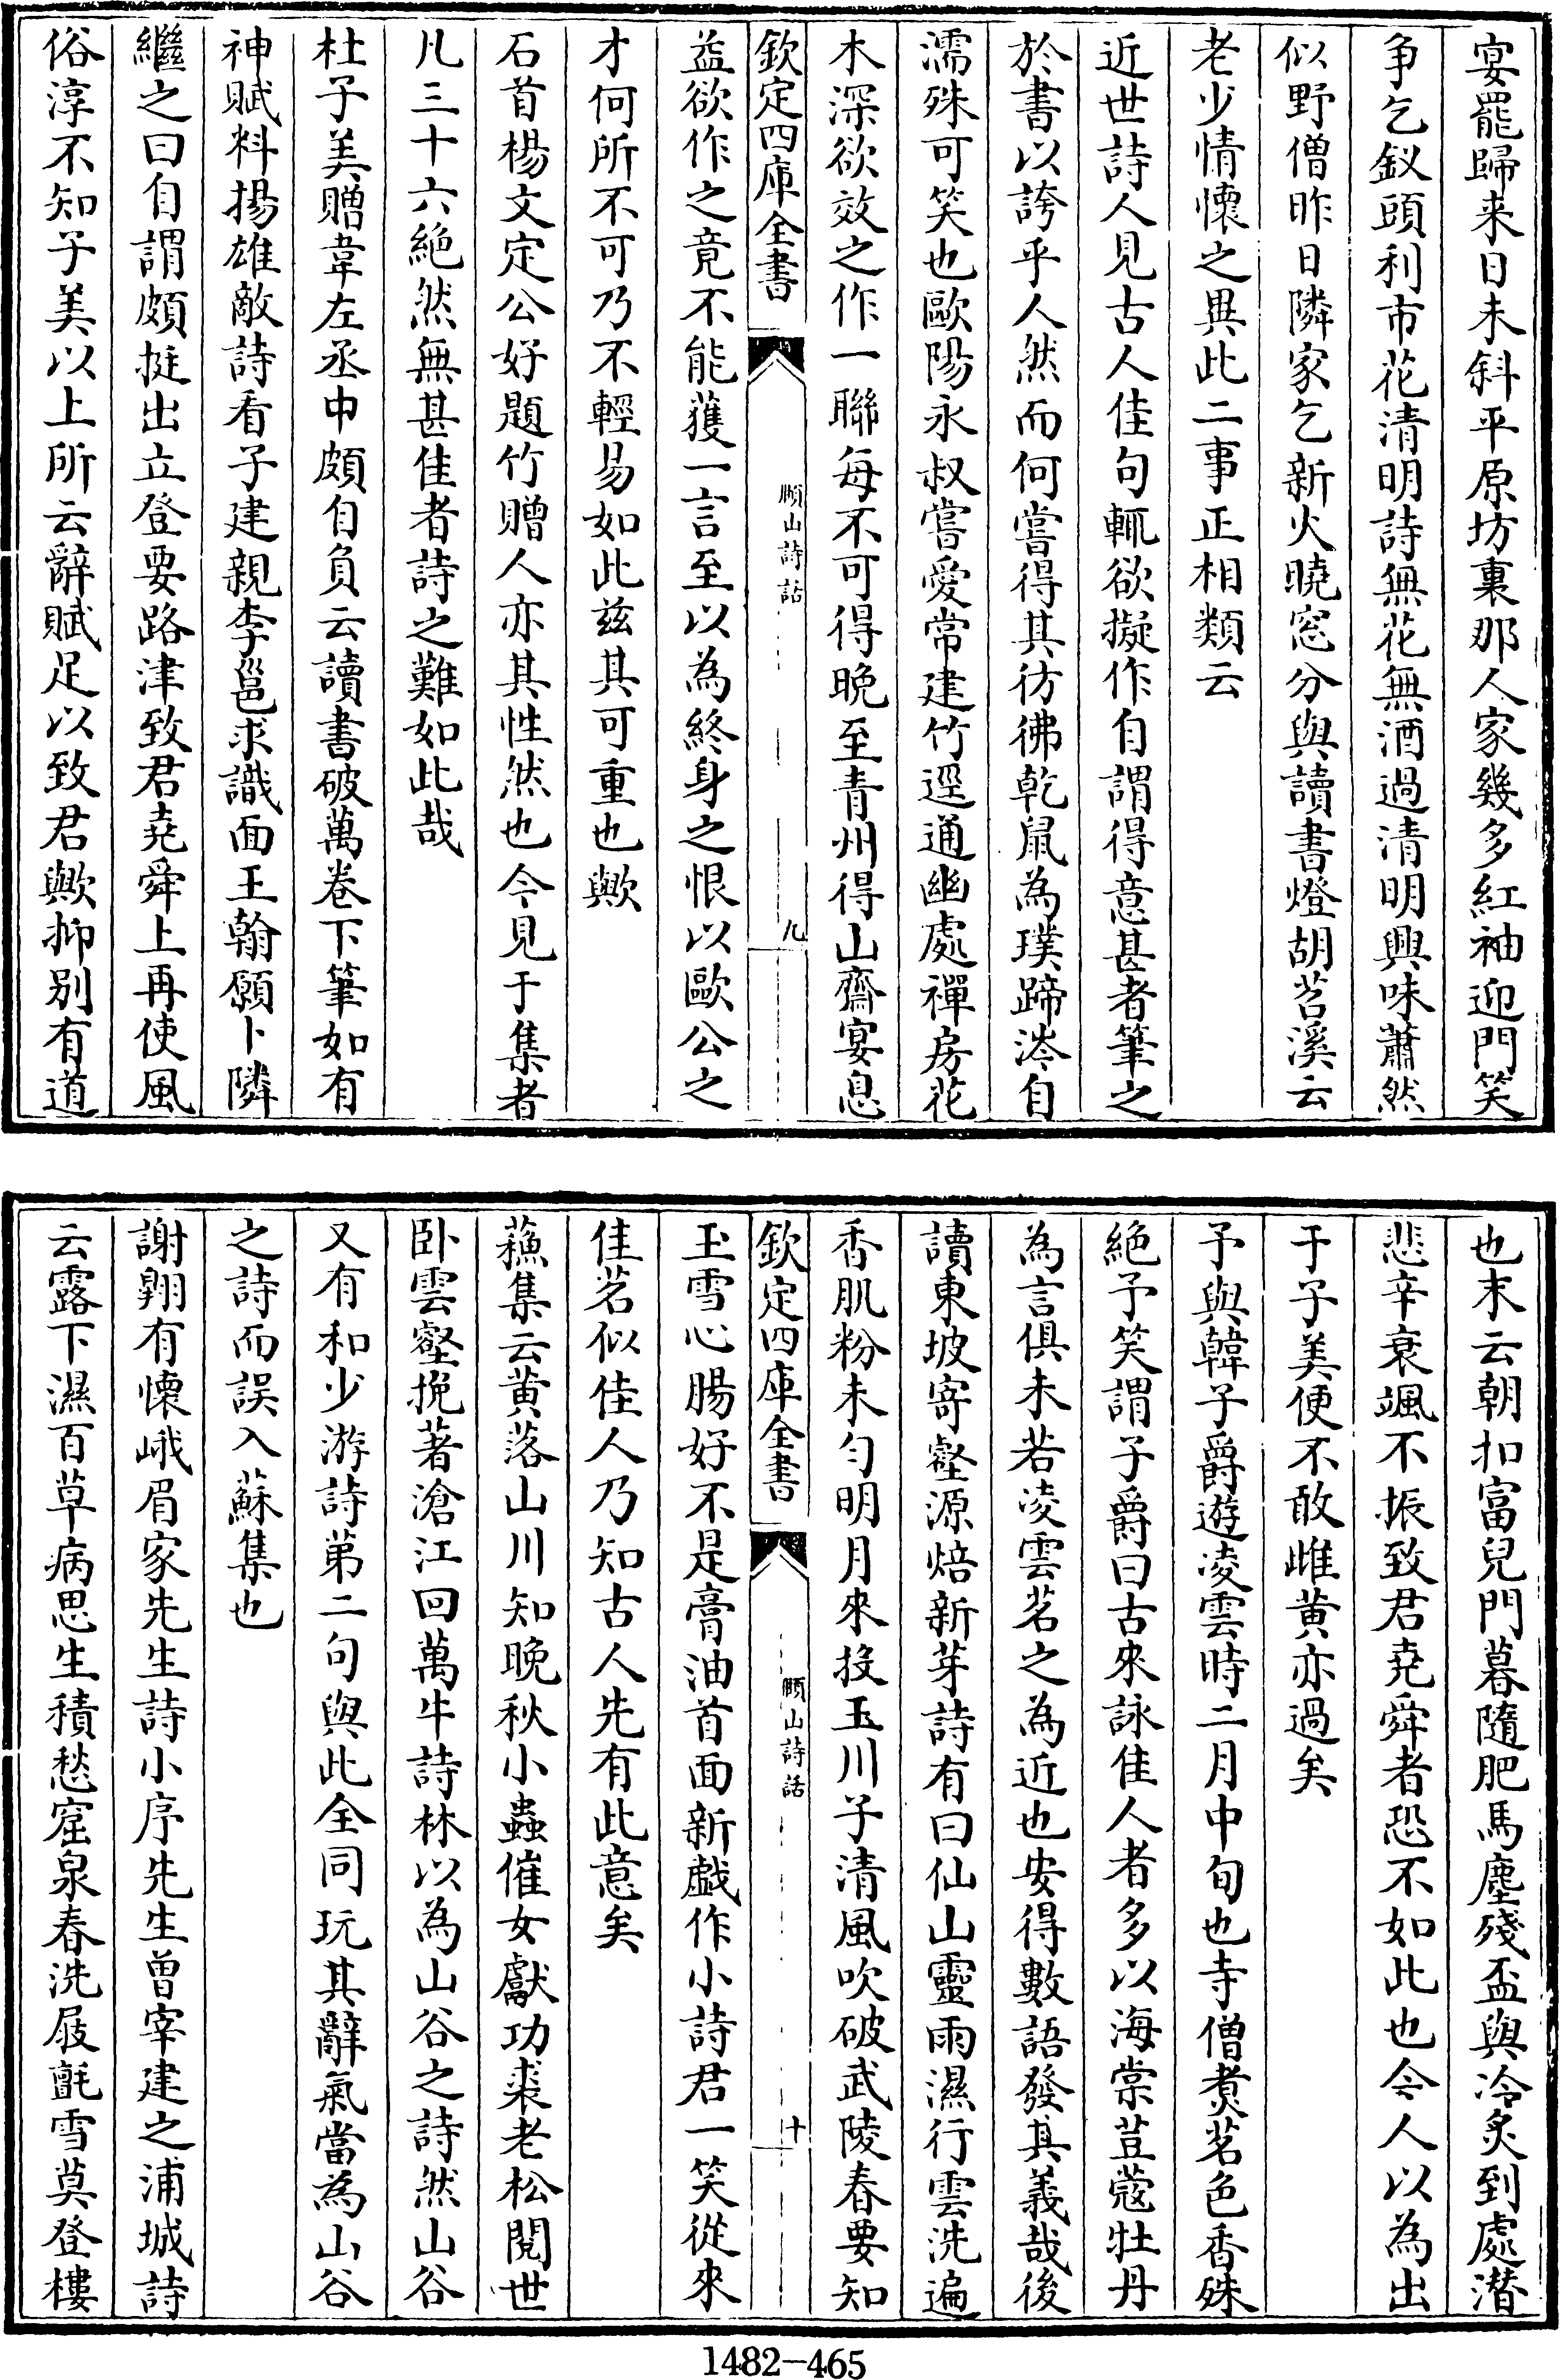 宴罷歸来日未斜平原坊裏那人家幾多紅袖迎門笑
争乞釵頭利市花清明詩無花無酒過清明興味蕭然
似野僧昨日隣家乞新火曉窓分與讀書燈胡苕溪云
老少情懷之異此二事正相類云
近世詩人見古人佳句輒欲擬作自謂得意甚者筆之
於書以誇乎人然而何嘗得其彷彿乾鼠為璞蹄涔自
濡殊可笑也歐陽永叔嘗愛常建竹逕通幽處禪房花
木深欲效之作一聯每不可得晩至青州得山齋宴息
欽定四庫全書
頤山詩話
九
益欲作之竟不能獲一言至以為終身之恨以歐公之
才何所不可乃不輕易如此兹其可重也歟
石首楊文定公好題竹贈人亦其性然也今見于集者
凡三十六絶然無甚佳者詩之難如此哉
杜子美贈韋左丞中頗自負云讀書破萬卷下筆如有
神賦料揚雄敵詩看子建親李邕求識面王翰願卜隣
繼之曰自謂頗挺出立登要路津致君堯舜上再使風
俗淳不知子美以上所云辭賦足以致君歟抑别有道
也末云朝扣富兒門暮隨肥馬塵殘盃與冷炙到處潜
悲辛衰颯不振致君堯舜者恐不如此也今人以為出
于子美便不敢雌黄亦過矣
予與韓子爵遊凌雲時二月中旬也寺僧煑茗色香殊
絶予笑謂子爵曰古來詠佳人者多以海棠荳蔻牡丹
為言俱未若凌雲茗之為近也安得數語發其義哉後
讀東坡寄壑源焙新芽詩有曰仙山靈雨濕行雲洗遍
香肌粉未匀明月來投玉川子清風吹破武陵春要知
欽定四庫全書
頤山詩話
十
玉雪心腸好不是膏油首面新戯作小詩君一笑從來
佳茗似佳人乃知古人先有此意矣
蘓集云黄落山川知晩秋小蟲催女獻功裘老松閱世
卧雲壑挽著滄江回萬牛詩林以為山谷之詩然山谷
又有和少游詩第二句與此全同玩其辭氣當為山谷
之詩而誤入蘇集也
謝翺有懷峨眉家先生詩小序先生曽宰建之浦城詩
云露下濕百草病思生積愁窊泉春洗屐氈雪莫登樓
1482-465